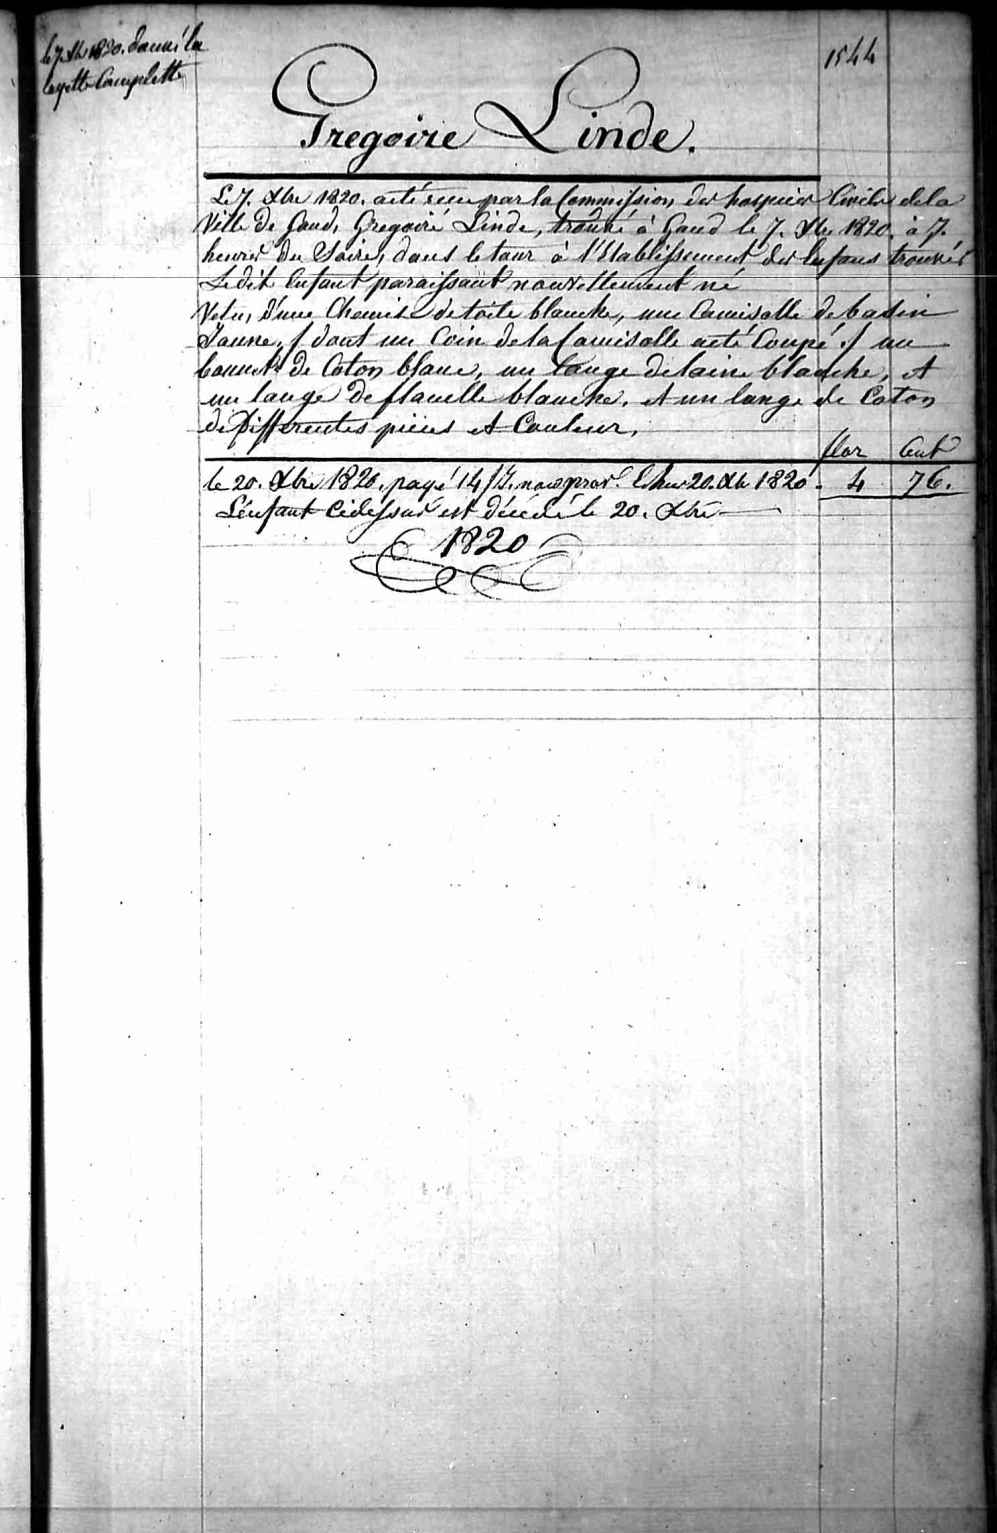 le 7. Xbr 1820. donné la
layette Complette
1544
Gregoire Linde.
Le 7. Xbre 1820. a eté recu par la Commission des hospices Civils de la
Ville de Gand, Gregoire Linde, trouvé à Gand le 7. Xbre 1820. à 7.
heures du Soire, dans le tour à l'Etablissement des Enfans trouvés
Le dit Enfant paraissant nouvellement né
Vetu, d'une Chemise de toile blanche, une Camisolle de basin
Jaune, (dont un Coin de la Camisolle a eté Coupé.) un
bonnet de Coton blanc, un lange de laine blanche, et
un lange de flanelle blanche, et un lange de Coton
de Differentes pieces et Couleur,
flor Cent
le 20. Xbre 1820. payé 14 20. Xb 1820. 4 76.
L'enfant cidessus est décédé le 20. Xbre
1820